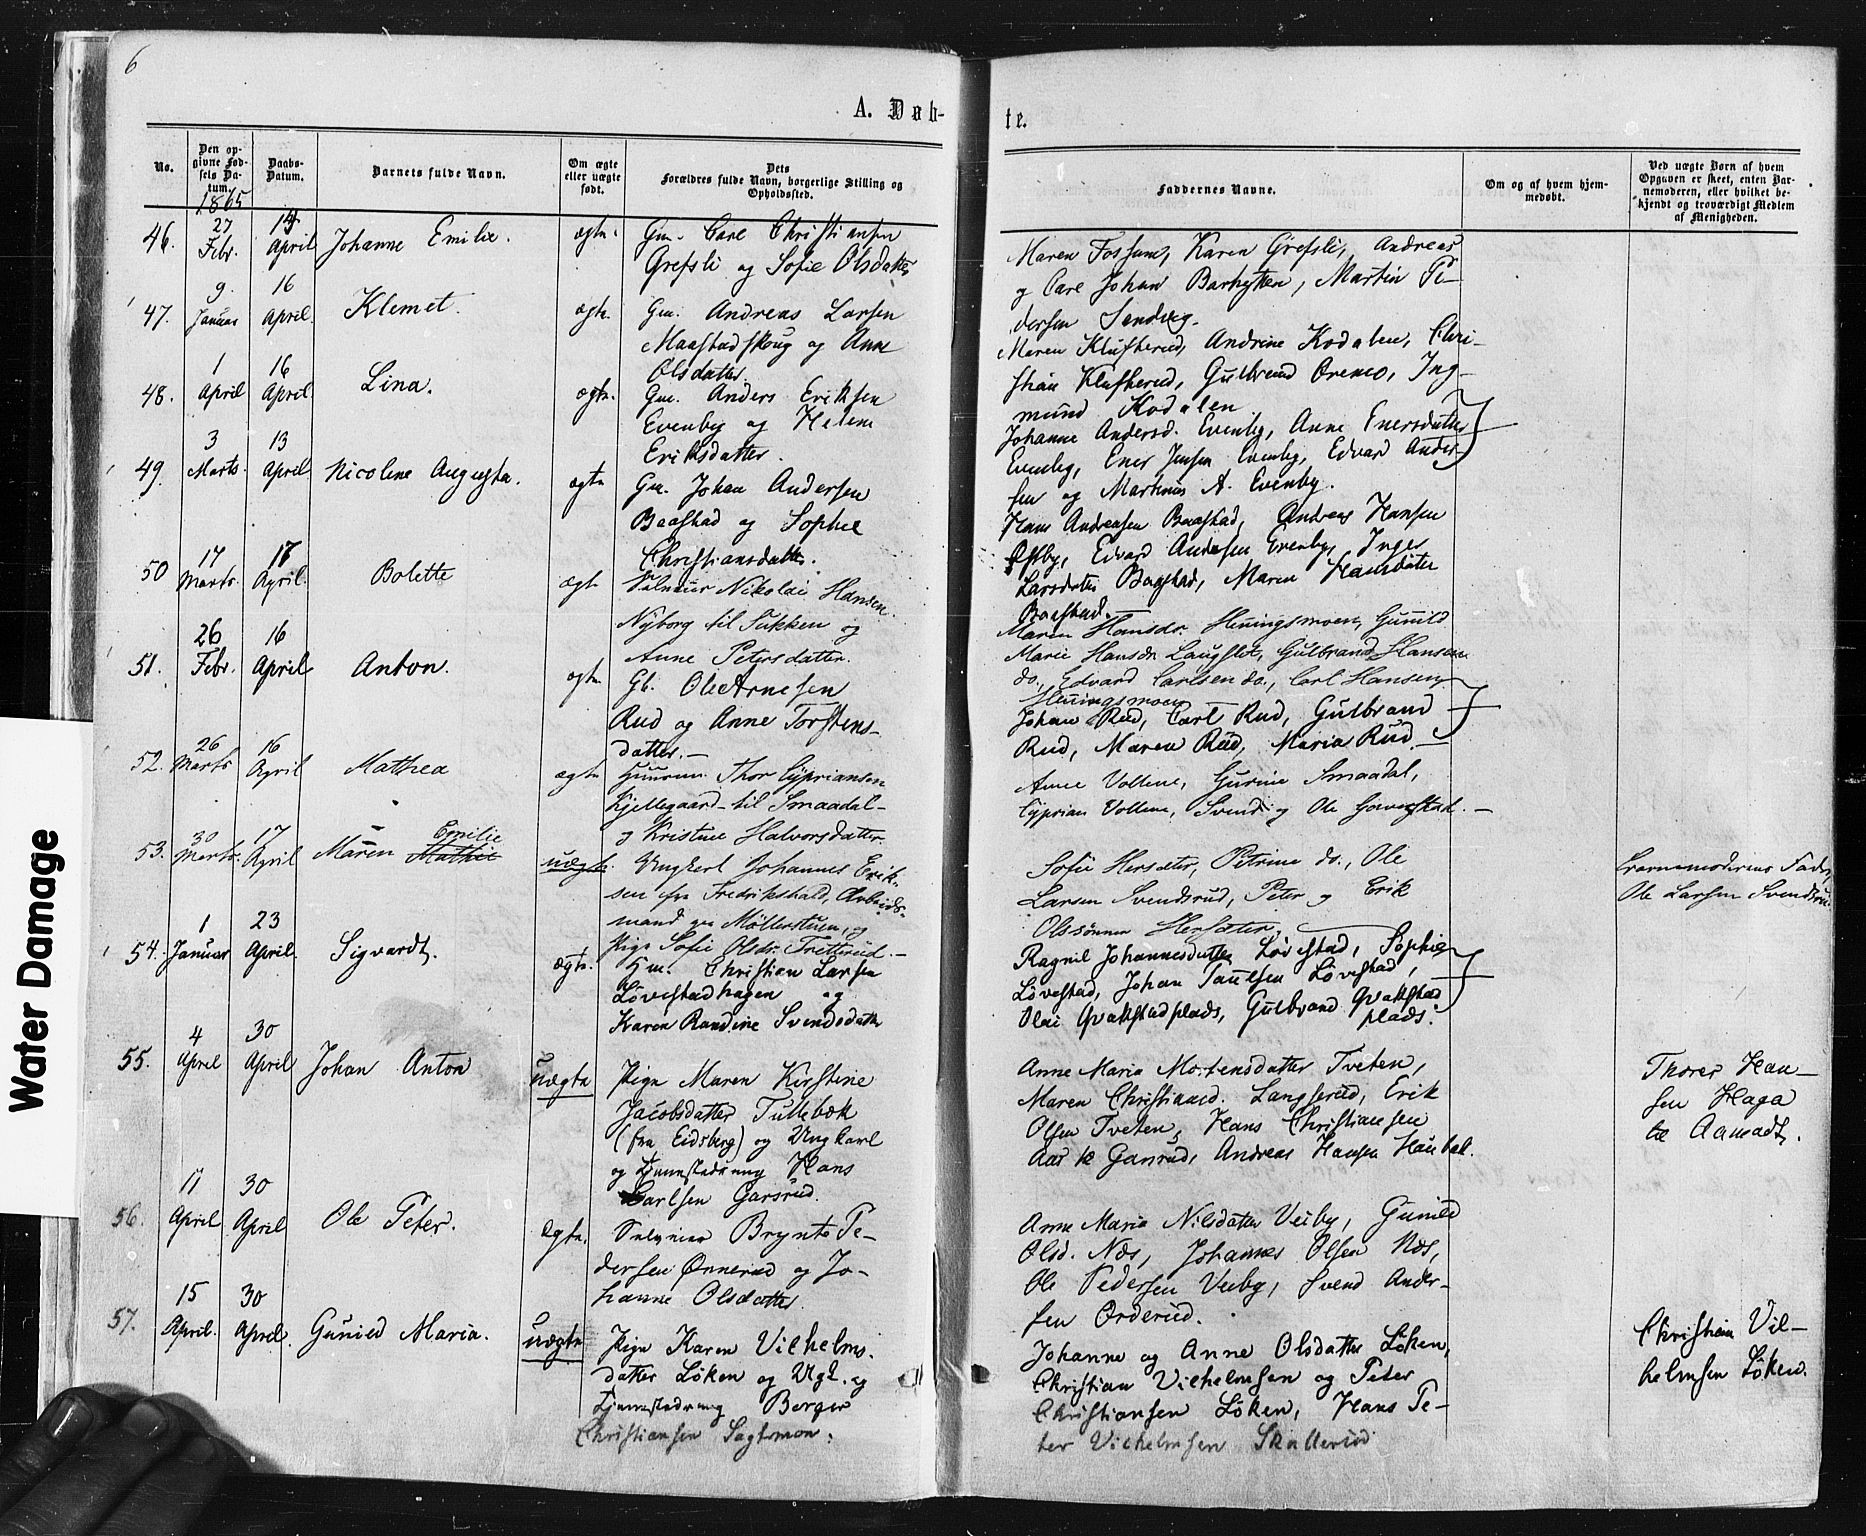 6
A. Døb-
te.
No.
Den op-
givne Fød-
sels Da-
tum.
Daabs-
Datum.
Barnets fulde Navn.
Om ægte
eller uægte
født.
Dets
Forældres fulde Navn, borgerlige Stilling og
Opholdssted.
Faddernes Navne.
Om og af hvem hjem-
medøbt.
Ved uægte Børn af hvem
Opgaven er skeet, enten Bar-
nemoderen, eller hvilket be-
kjendt og troværdigt Medlem
af Menigheden.
1865
46. 27 Febr. April Johanne Emilie. ægte. Gm. Christiansen
Grefsli og Sofie Olsdatter
Maren Fossum, Karen Grefsli, Andreas
og Johan Martin Pe-
dersen
47. 9 Januar 16 April Klemet. ægte. Gm. Andreas Larsen
Maastadskoug og Anne
Olsdatter
Maren Klufterud, Andrine Kodalen, Chri-
stian Klufterud, Gulbrand Ing-
mund Kodalen
48. 1 April 16 April Lina. ægte. Gm. Anders Eriksen
Evenby og Helene
Eriksdatter.
Johanne Andersd. Evenby, Anne Enersdatter
Evenby, Ener Jensen Evenby, Edvard Ander-
sen og Martinus A. Evenby.
49. 3 Marts 13 April Nicoline Augusta. ægte Gm. Johan Andersen
Baastad og Sophie
Christiansdatter.
Hans Andreasen Baastad, Andreas Hansen
Østby, Edvard Andersen Evenby, Inger
Larsdatter Baastad, Maren Hansdatter
Baastad.
50 17 Marts 17 April Bolette ægte Nikolai Hansen
Nyborg til Sukken og
Anne Petersdatter.
Maren Hansdr. Heningsmoen, Gunild
Marie Hansdr. Gulbrand Hansen
do., Edvard Carlsen do., Carl Hansen
Heningsmoen
51. 26 Febr. 16 April Anton. ægte Gb. Ole Arnesen
Rud og Anne Torstens-
datter.-
Johan Rud, Carl Rud, Gulbrand
Rud, Maren Rud, Maria Rud.
52. 26 Marts 16 April Mathea ægte Thor Cypriansen
Kjellegaard til Smaadal
og Kristine Halvorsdatter
Anne Vollene, Gurine Smaadal,
Cyprian Vollene, Svend og Ole
53. 30 Marts 17 April Maren Emilie uægte Ungkarl Johannes Erik-
sen fra Fredrikshald, Arbeids-
mand paa Møllerstuen, og
Pige Sofie Olsdr.
Sofie Hersæter, Petrine do., Ole
Larsen Svendsrud, Peter og Erik
Olssønner Hersæter.
Barnemoderens Fader
Ole Larsen Svendsrud
54. 1 Januar 23 April Sigvardt. ægte. Christian Larsen
Løvestadhagen og
Karen Randine Svendsdatter
Ragnil Johannesdatter Løvestad, Sophie
Løvestad, Johan Paulsen Løvestad,
Olai Gulbrand
plads.
55. 4 April 30 April Johan Anton uægte Pige Maren Kirstine
Jacobsdatter Tullebæk
(fra Eidsberg) og Ungkarl
og Hans
Carlsen Gansrud.
Anne Maria Mortensdatter Tveten,
Maren Christiansd. Langserud, Erik
Olsen Tveten, Hans Christiansen
Gansrud, Andreas Hansen
Thorer Han-
sen Haga
til Aamodt.
56. 11 April 30 April Ole Peter. ægte. Brynte Pe-
dersen Ønnerud og Jo-
hanne Olsdatter
Anne Maria Nilsdatter Veiby, Gunild
Olsd. Næs, Johannes Olsen Næs,
Ole Pedersen Veiby, Svend Ander-
sen Orderud.
57. 15 April. 30 April. Gunild Maria. uægte Pige Karen Vilhelms-
datter Løken og Ugk. og
Berger
Christiansen
Johanne og Anne Olsdatter Løken,
Christian Vilhelmsen og Peter
Christiansen Løken, Hans Pe-
ter Vilhelmsen Skallerud
Christian Vil-
helmsen Løken.
Water Damage